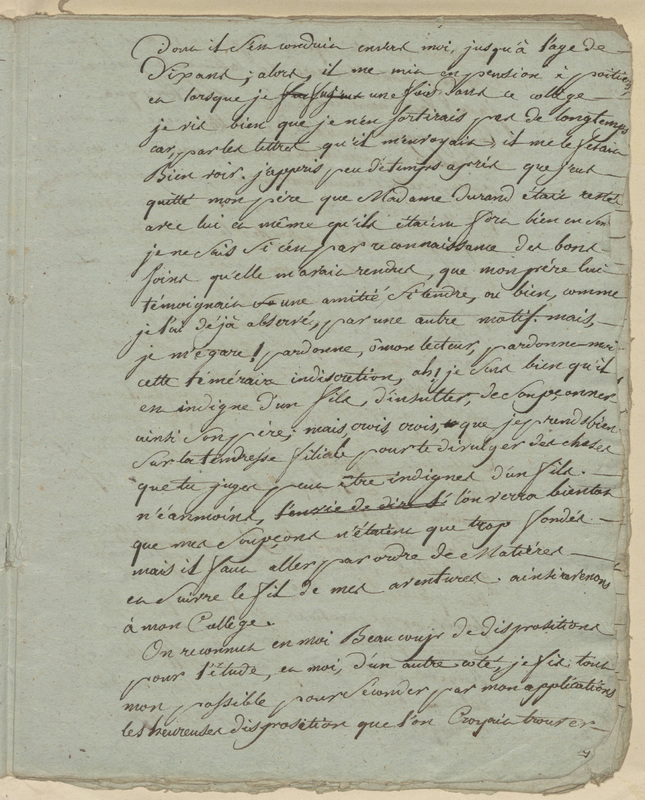 dont il s'en conduit envers moi, jusqu'à l'age de
dix ans; alors, il me mit en pension à poitiers,
et lorsque je une fois dans ce collège
je vis bien que je n'en sortirais pas de longtemps
car, par les lettres qu'il m'envoyait, il me le fesait
Bien voir. j'appris peu de temps après que j'eus
quitté mon père que Madame durand était restée
avec lui et même qu'ils étaient fort bien en sem
je ne sais si c'ent par reconnaissance des bons
soins qu'elle m'avait rendus, que mon père lui
témoignait une amitié si tendre, où bien, comme
je l'ai déjà observé, par une autre motif. mais,
je m'égare! pardonne, ô mon lecteur, pardonne-moi
cette téméraire indiscretion, ah! je sens bien qu'il
est indigne d'un fils, d'insulter, de soupçonner
ainsi son père; mais, crois crois, que je prends bien
sur la tendresse filiale pour te divulger des choses
que tu juges peut être indignes d'un fils.
n'éanmoins, l'envie de dire l'on verra bientot
que mes soupçons n'étaient que trop fondés.
mais il faut aller par ordre de Matières
et suivre le fil de mes aventures. ainsi revenons
à mon Collège.
On reconnut en moi Beaucoup de dispositions
pour l'étude, et moi, d'un autre coté, je fis tout
mon possible pour séconder par mon applications
les heureuses disposition que l'on Croyait trouver